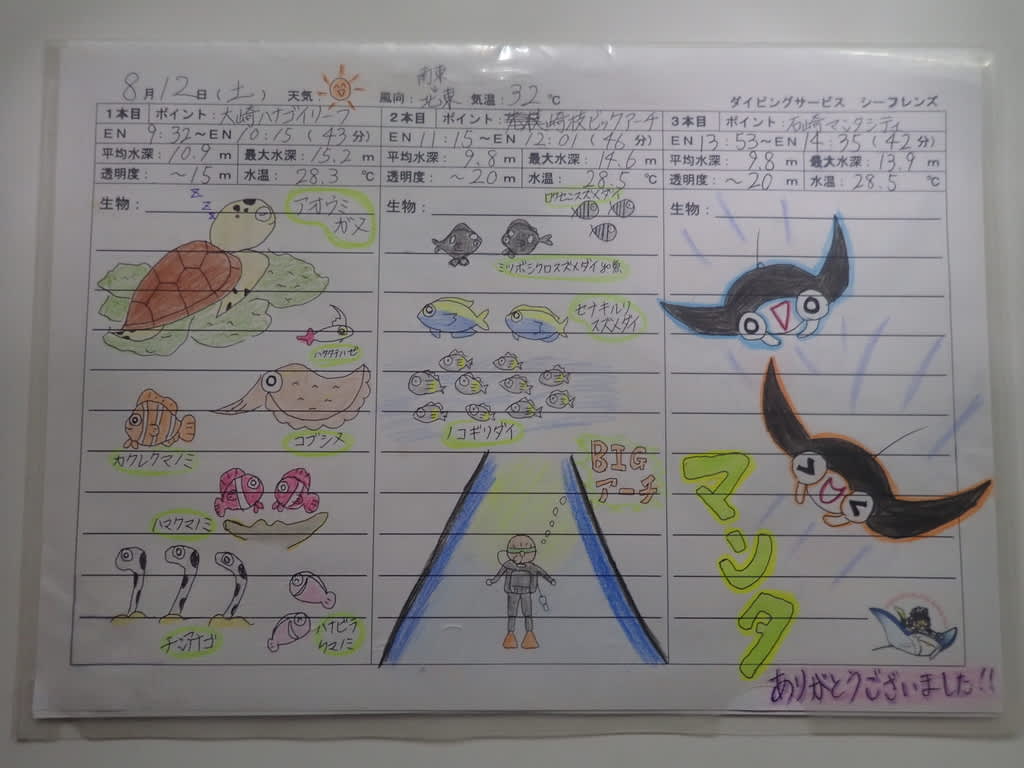 8月12日(土) 天気: 風向: 南東 北東 気温: 32℃
ダイビングサービス シーフレンズ
1本目 ポイント: 大崎ハナゴイリーフ
EN 9:32～EN 10:15 (43分)
平均水深: 10.9 m 最大水深: 15.2 m
透明度: ～15 m 水温: 28.3 ℃
生物:
z z z
アオウミ
ガメ
ハタタテハゼ
コブシメ
カクレクマノミ
ハマクマノミ
チンアナゴ
ハナビラ
クマノミ
2本目 ポイント: 崎枝ビッグアーチ
EN 11:15～EN 12:01 (46分)
平均水深: 9.8 m 最大水深: 14.6 m
透明度: ～20 m 水温: 28.5 ℃
生物:
ロクセンスズメダイ
ミツボシクロスズメダイ幼魚
セナキルリ
スズメダイ
ノコギリダイ
BIG
アーチ
3本目 ポイント: 石崎マンタシティ
EN 13:53～EN 14:35 (42分)
平均水深: 9.8 m 最大水深: 13.9 m
透明度: ～20 m 水温: 28.5 ℃
生物:
マンタ
ありがとうございました!!